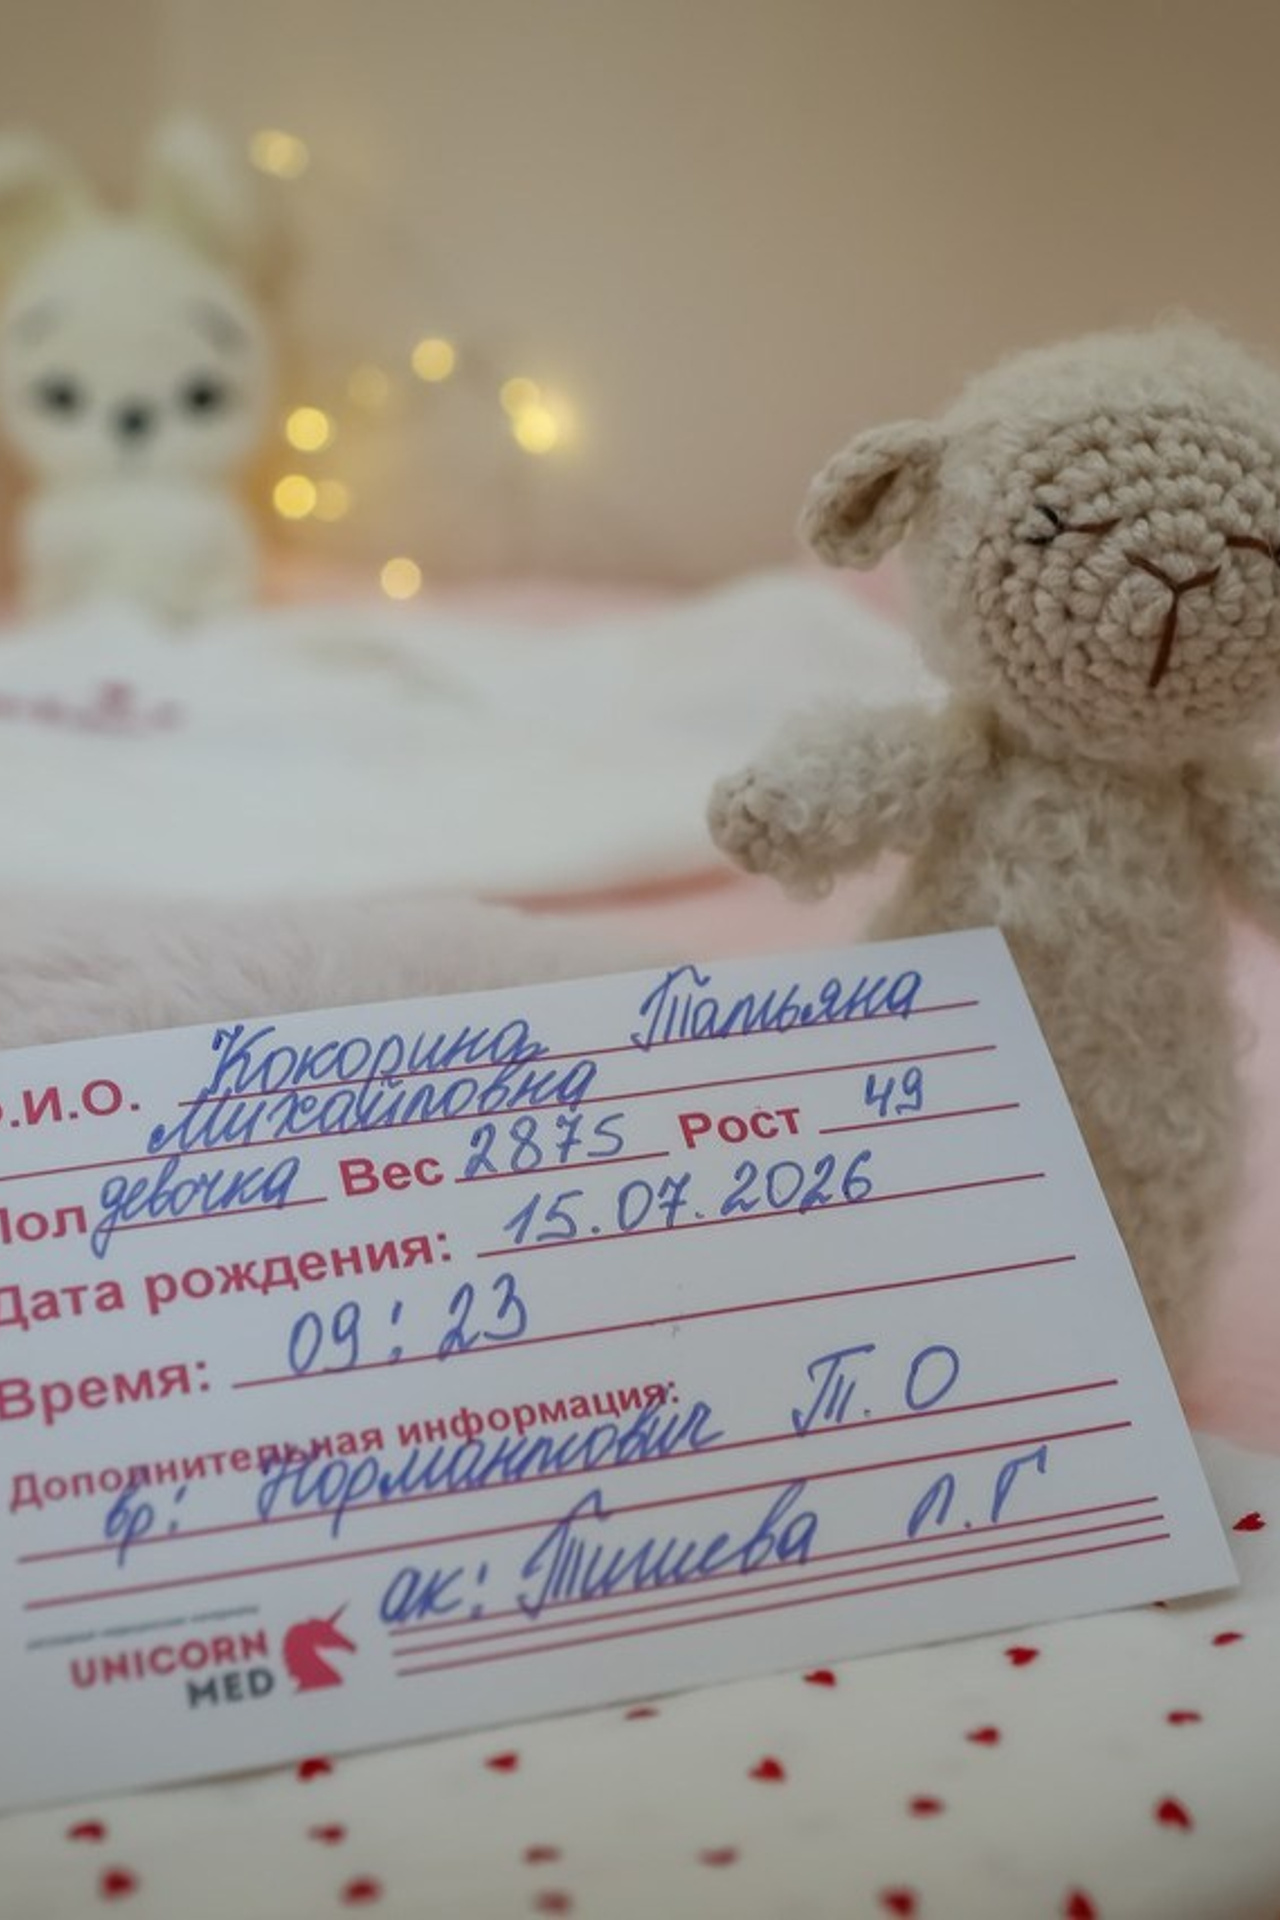 .И.О. Кокорина Татьяна
Михайловна
Пол девочка Вес 2875 Рост 49
Дата рождения: 15.07.2026
Время: 09:23
Дополнительная информация:
вр: Нормантович Т.О
ак: Тишева Л.Г
UNICORN
MED